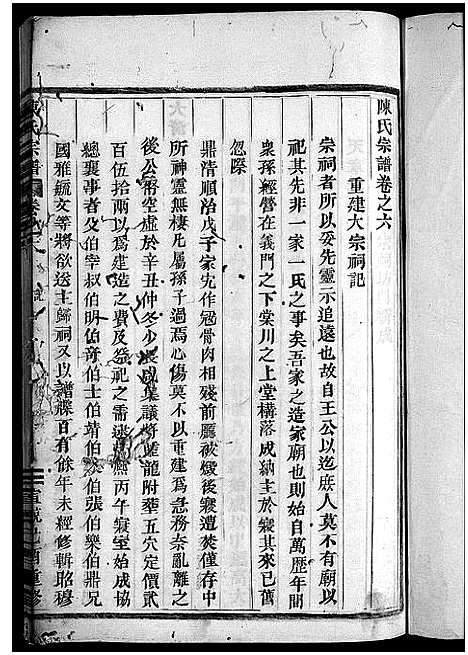 陳氏宗譜卷之六
重建大宗祠記
宗祠者所以妥先靈示追遠也故自王公以迄庶人莫不有廟以
祀其先非一家一氏之事矣吾家之造家廟也則始自萬歷年間
衆孫經營在義門之下棠川之上堂構落成納主於寢其來舊矣
忽際
鼎清順治戊子家宄作冦骨肉相殘前廳被燬後寢遭焚僅存中
所神靈無棲凡屬孫子過焉心傷莫不以重建為急務奈亂離之
後公帑空虛於辛丑仲冬少長咸集議將 龍附葬五穴定價貳
百伍拾兩以為建造之費及祭祀之需逮 丙午寢室始成協
總襄事者父伯宰叔伯明伯奇伯士伯靖伯執伯張伯樂伯鼎兄
國雅毓文等將欲送主歸祠又以譜牒百有餘年未經修輯昭穆
宗譜 卷 六 記